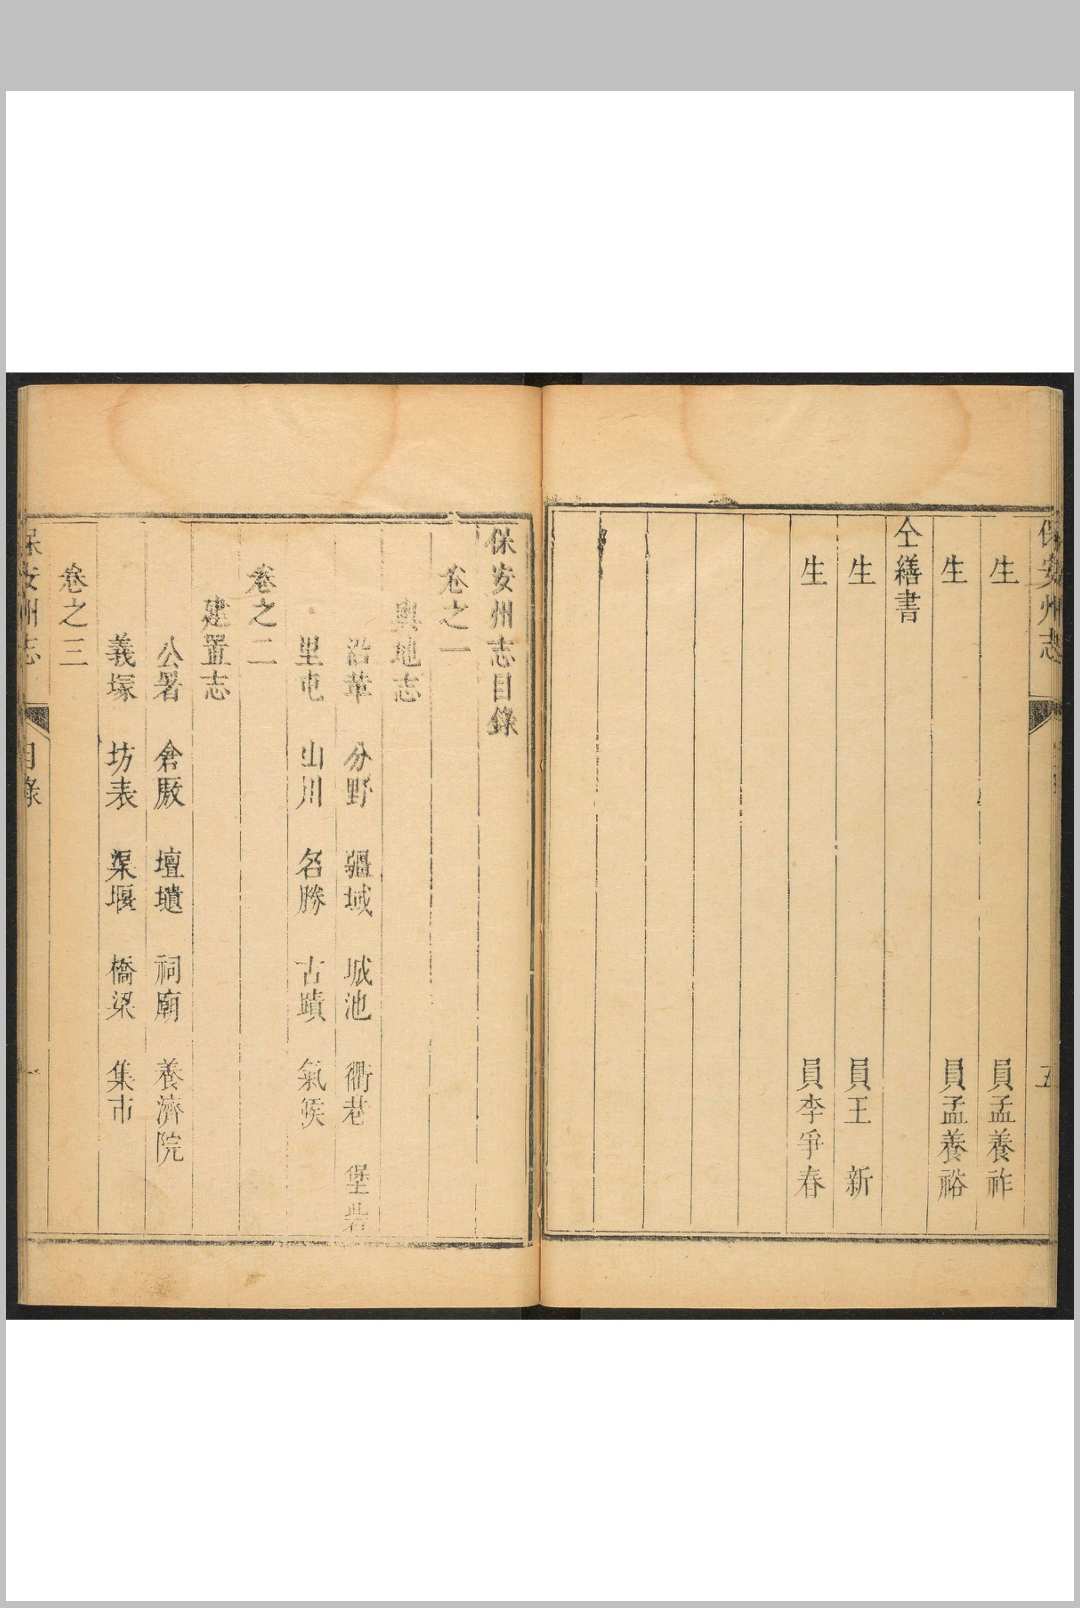 保安州志
五
生 員孟養祚
生 員孟養裕
仝繕書
生 員王 新
生 員李爭春
保安州志目錄
卷之一
輿地志
沿革 分野 疆域 城池 衢巷 堡砦
里屯 山川 名勝 古蹟 氣候
卷之二
建置志
公署 倉厫 壇壝 祠廟 養濟院
義塚 坊表 渠堰 橋梁 集市
卷之三
保安州志 目錄 一